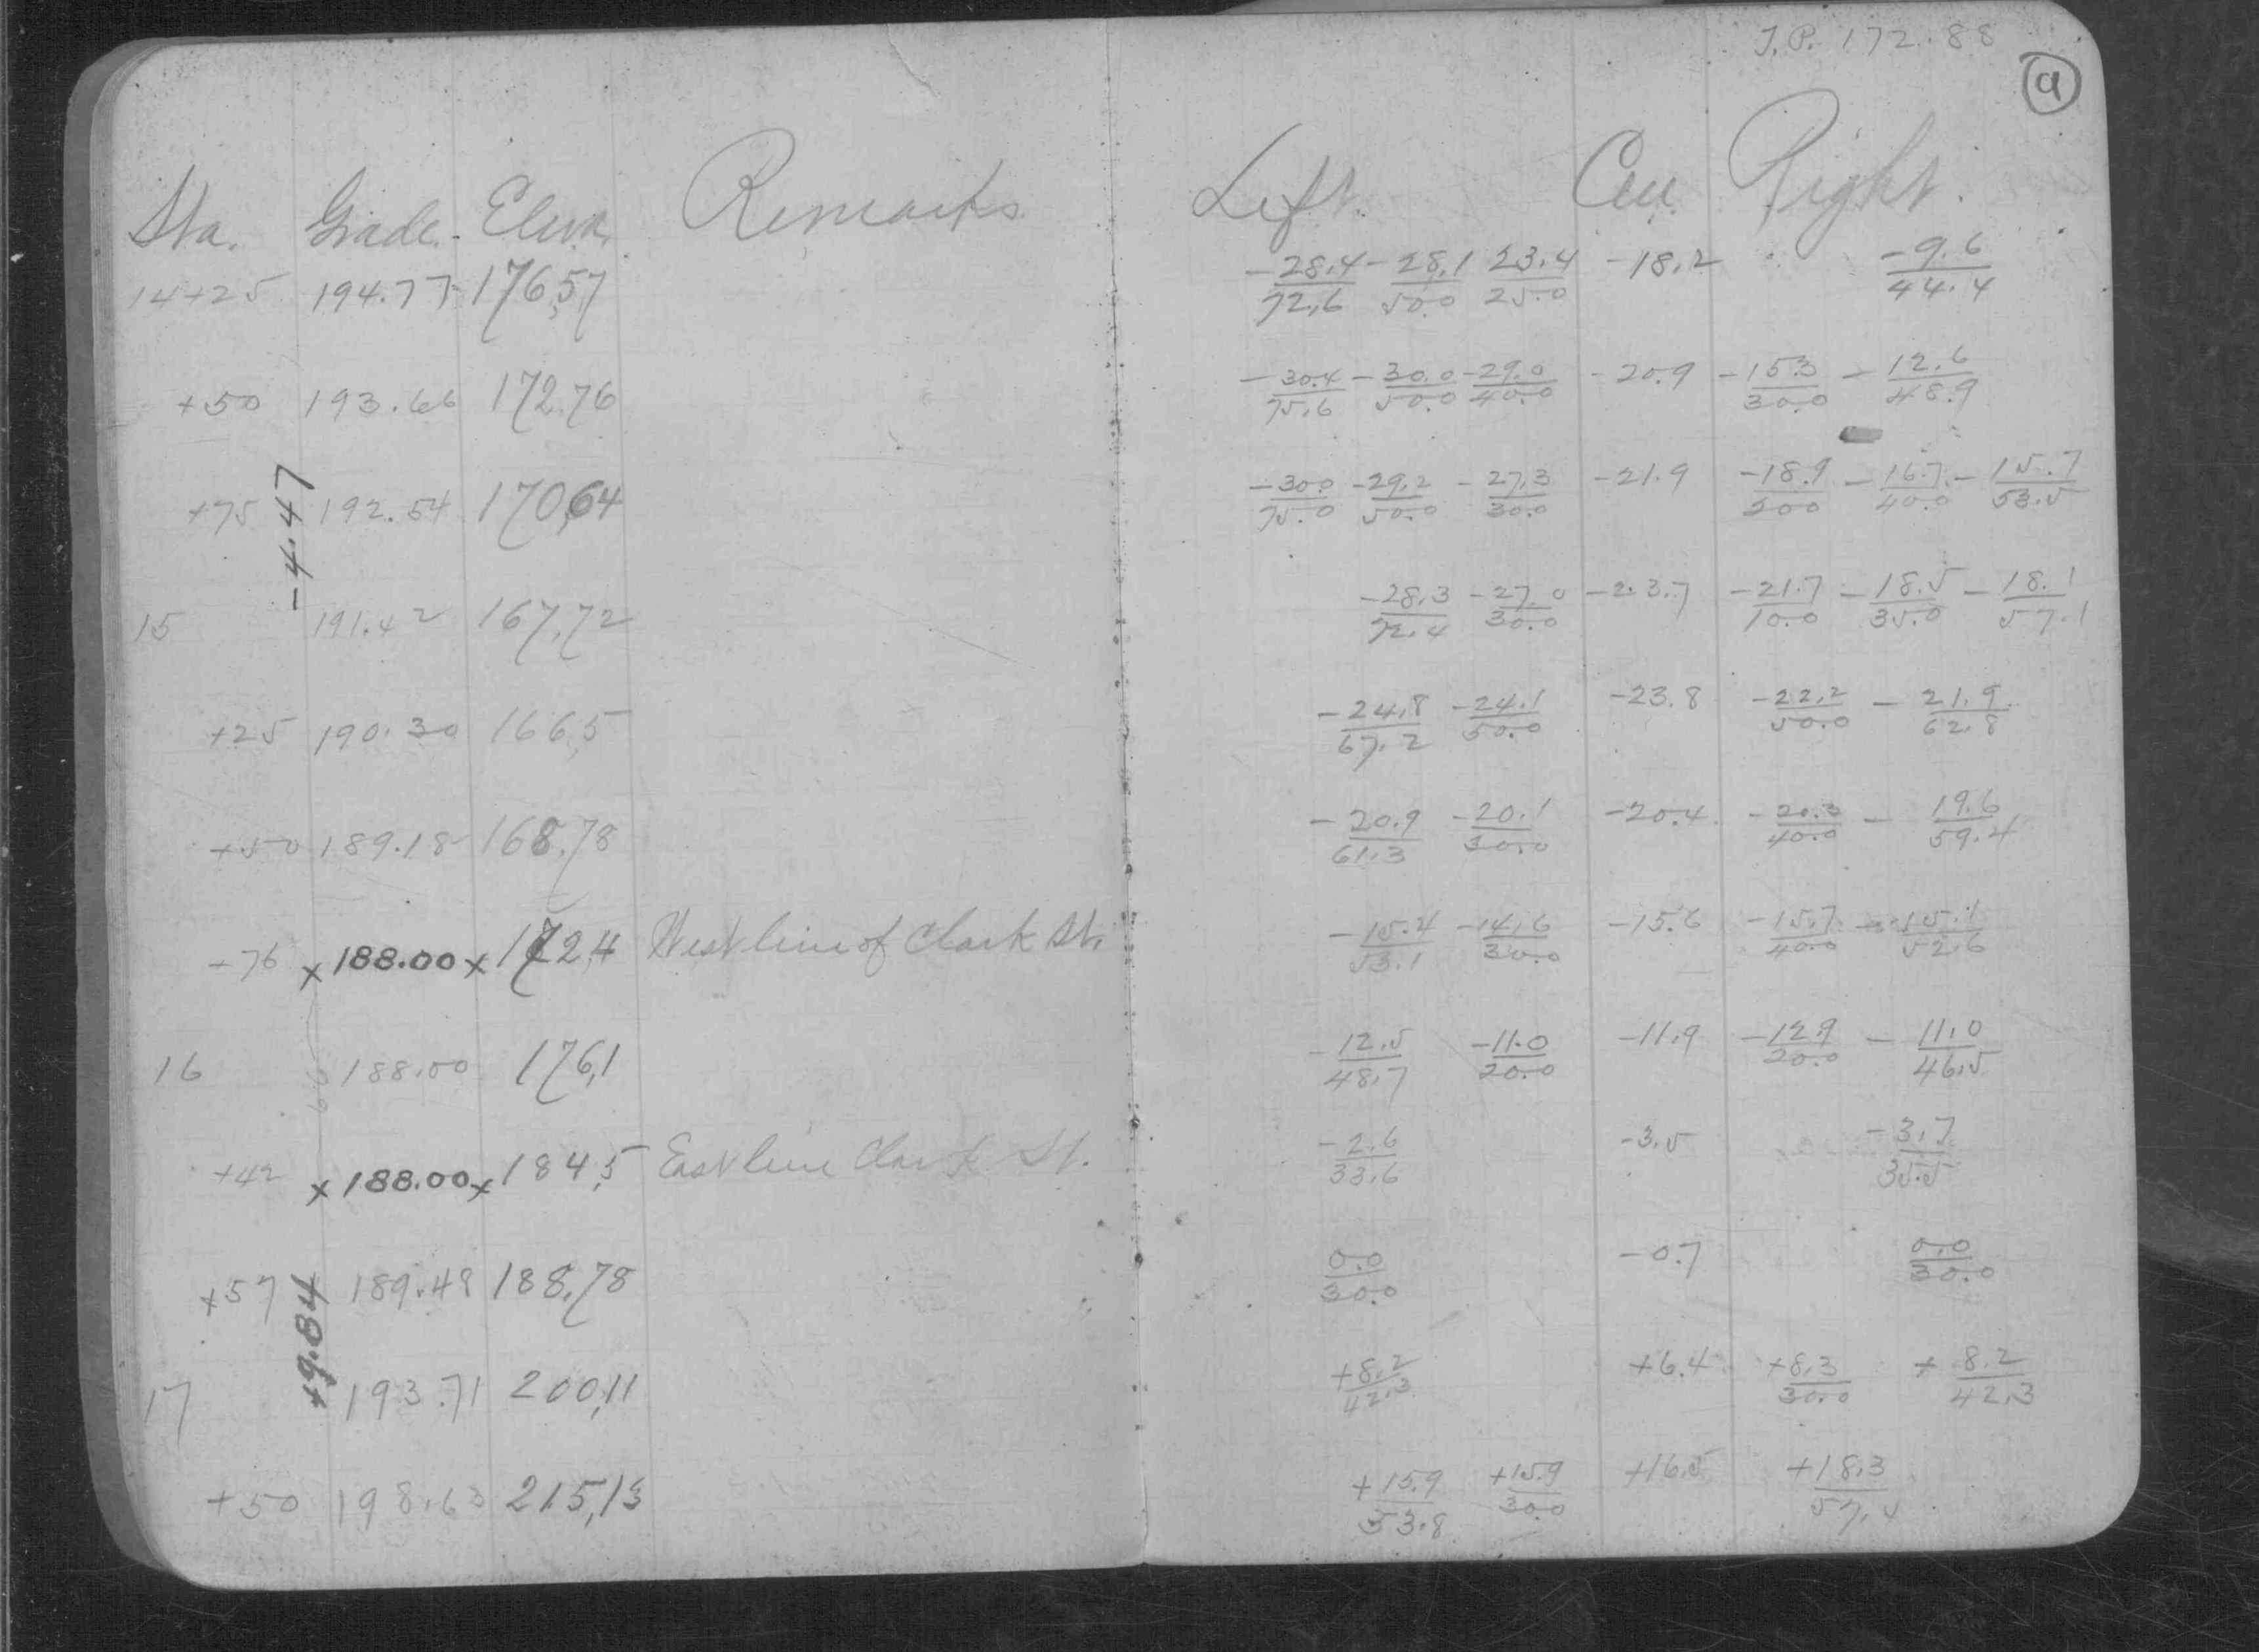 T.P. 172.88
9
Sta. Grade. Eleva. Remarks Left. Cen. Right.
14+25 194.77 176,57 -28.4/72.6 -28.1/50.0 23.4/25.0 -18.2 -9.6/44.4
+50 193.66 172.76 -30.4/75.6 -30.0/50.0 -29.0/40.0 -20.9 -15.3/30.0 -12.6/48.9
-4.47
+75 192.54 170,64 -30.0/75.0 -29.2/50.0 -27.3/30.0 -21.9 -18.9/20.0 -16.7/40.0 -15.7/53.5
15 191.42 167,72 -28.3/72.4 -27.0/30.0 -23.7 -21.7/10.0 -18.5/35.0 -18.1/57.1
+25 190.30 166,5 -24.8/67.2 -24.1/50.0 -23.8 -22.2/50.0 -21.9/62.8
+50 189.18 168,78 -20.9/61.3 -20.1/30.0 -20.4 -20.3/40.0 -19.6/59.4
+76 x 188.00 x 172,4 West line of Clark St. -15.4/53.1 -14.6/30.0 -15.6 -15.7/40.0 -15.1/52.6
16 188.00 176,1 -12.5/48.7 -11.0/20.0 -11.9 -12.9/20.0 -11.0/46.5
+42 x 188.00 x 184,5 East line Clark St. -2.6/33.6 -3.5 -3.7/35.5
+57 189.48 188,78 0.0/30.0 -0.7 0.0/30.0
+9.84
17 193.71 200,11 +8.2/42.3 +6.4 +8.3/30.0 +8.2/42.3
+50 198.63 215,13 +15.9/53.8 +15.9/30.0 +16.5 +18.3/57.4